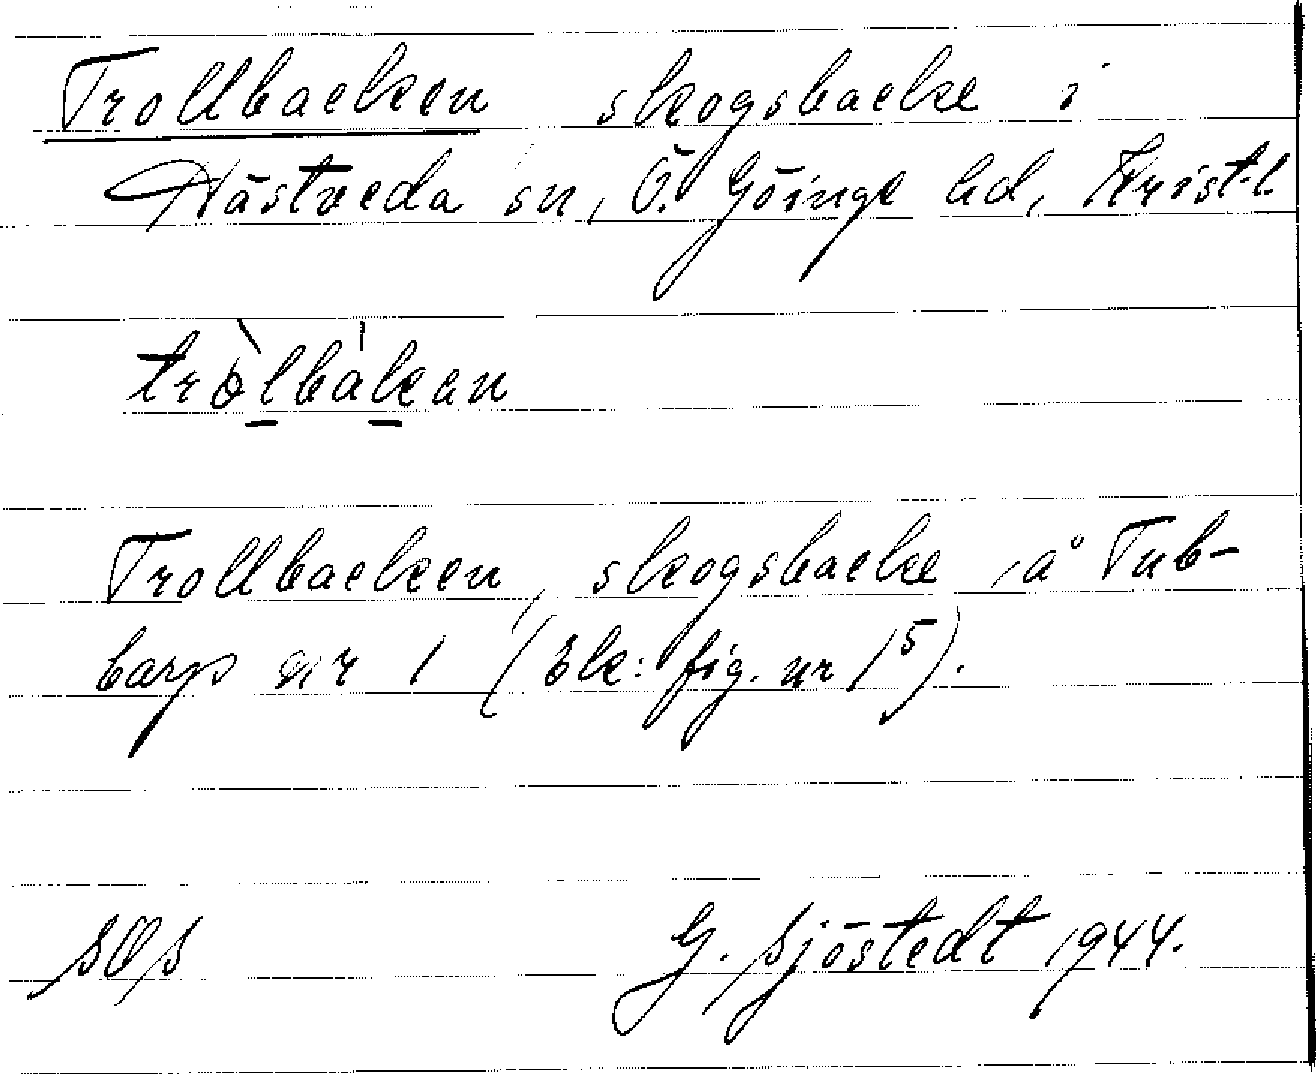 Trollbacken skogsbacke i
Hästveda sn, Ö. Göinge hd, Krist-l
tròlbákan
Trollbacken, skogsbacke, å Tub-
barp nr 1 (Ek: fig. nr 15).
SOS G. Sjöstedt 1944.